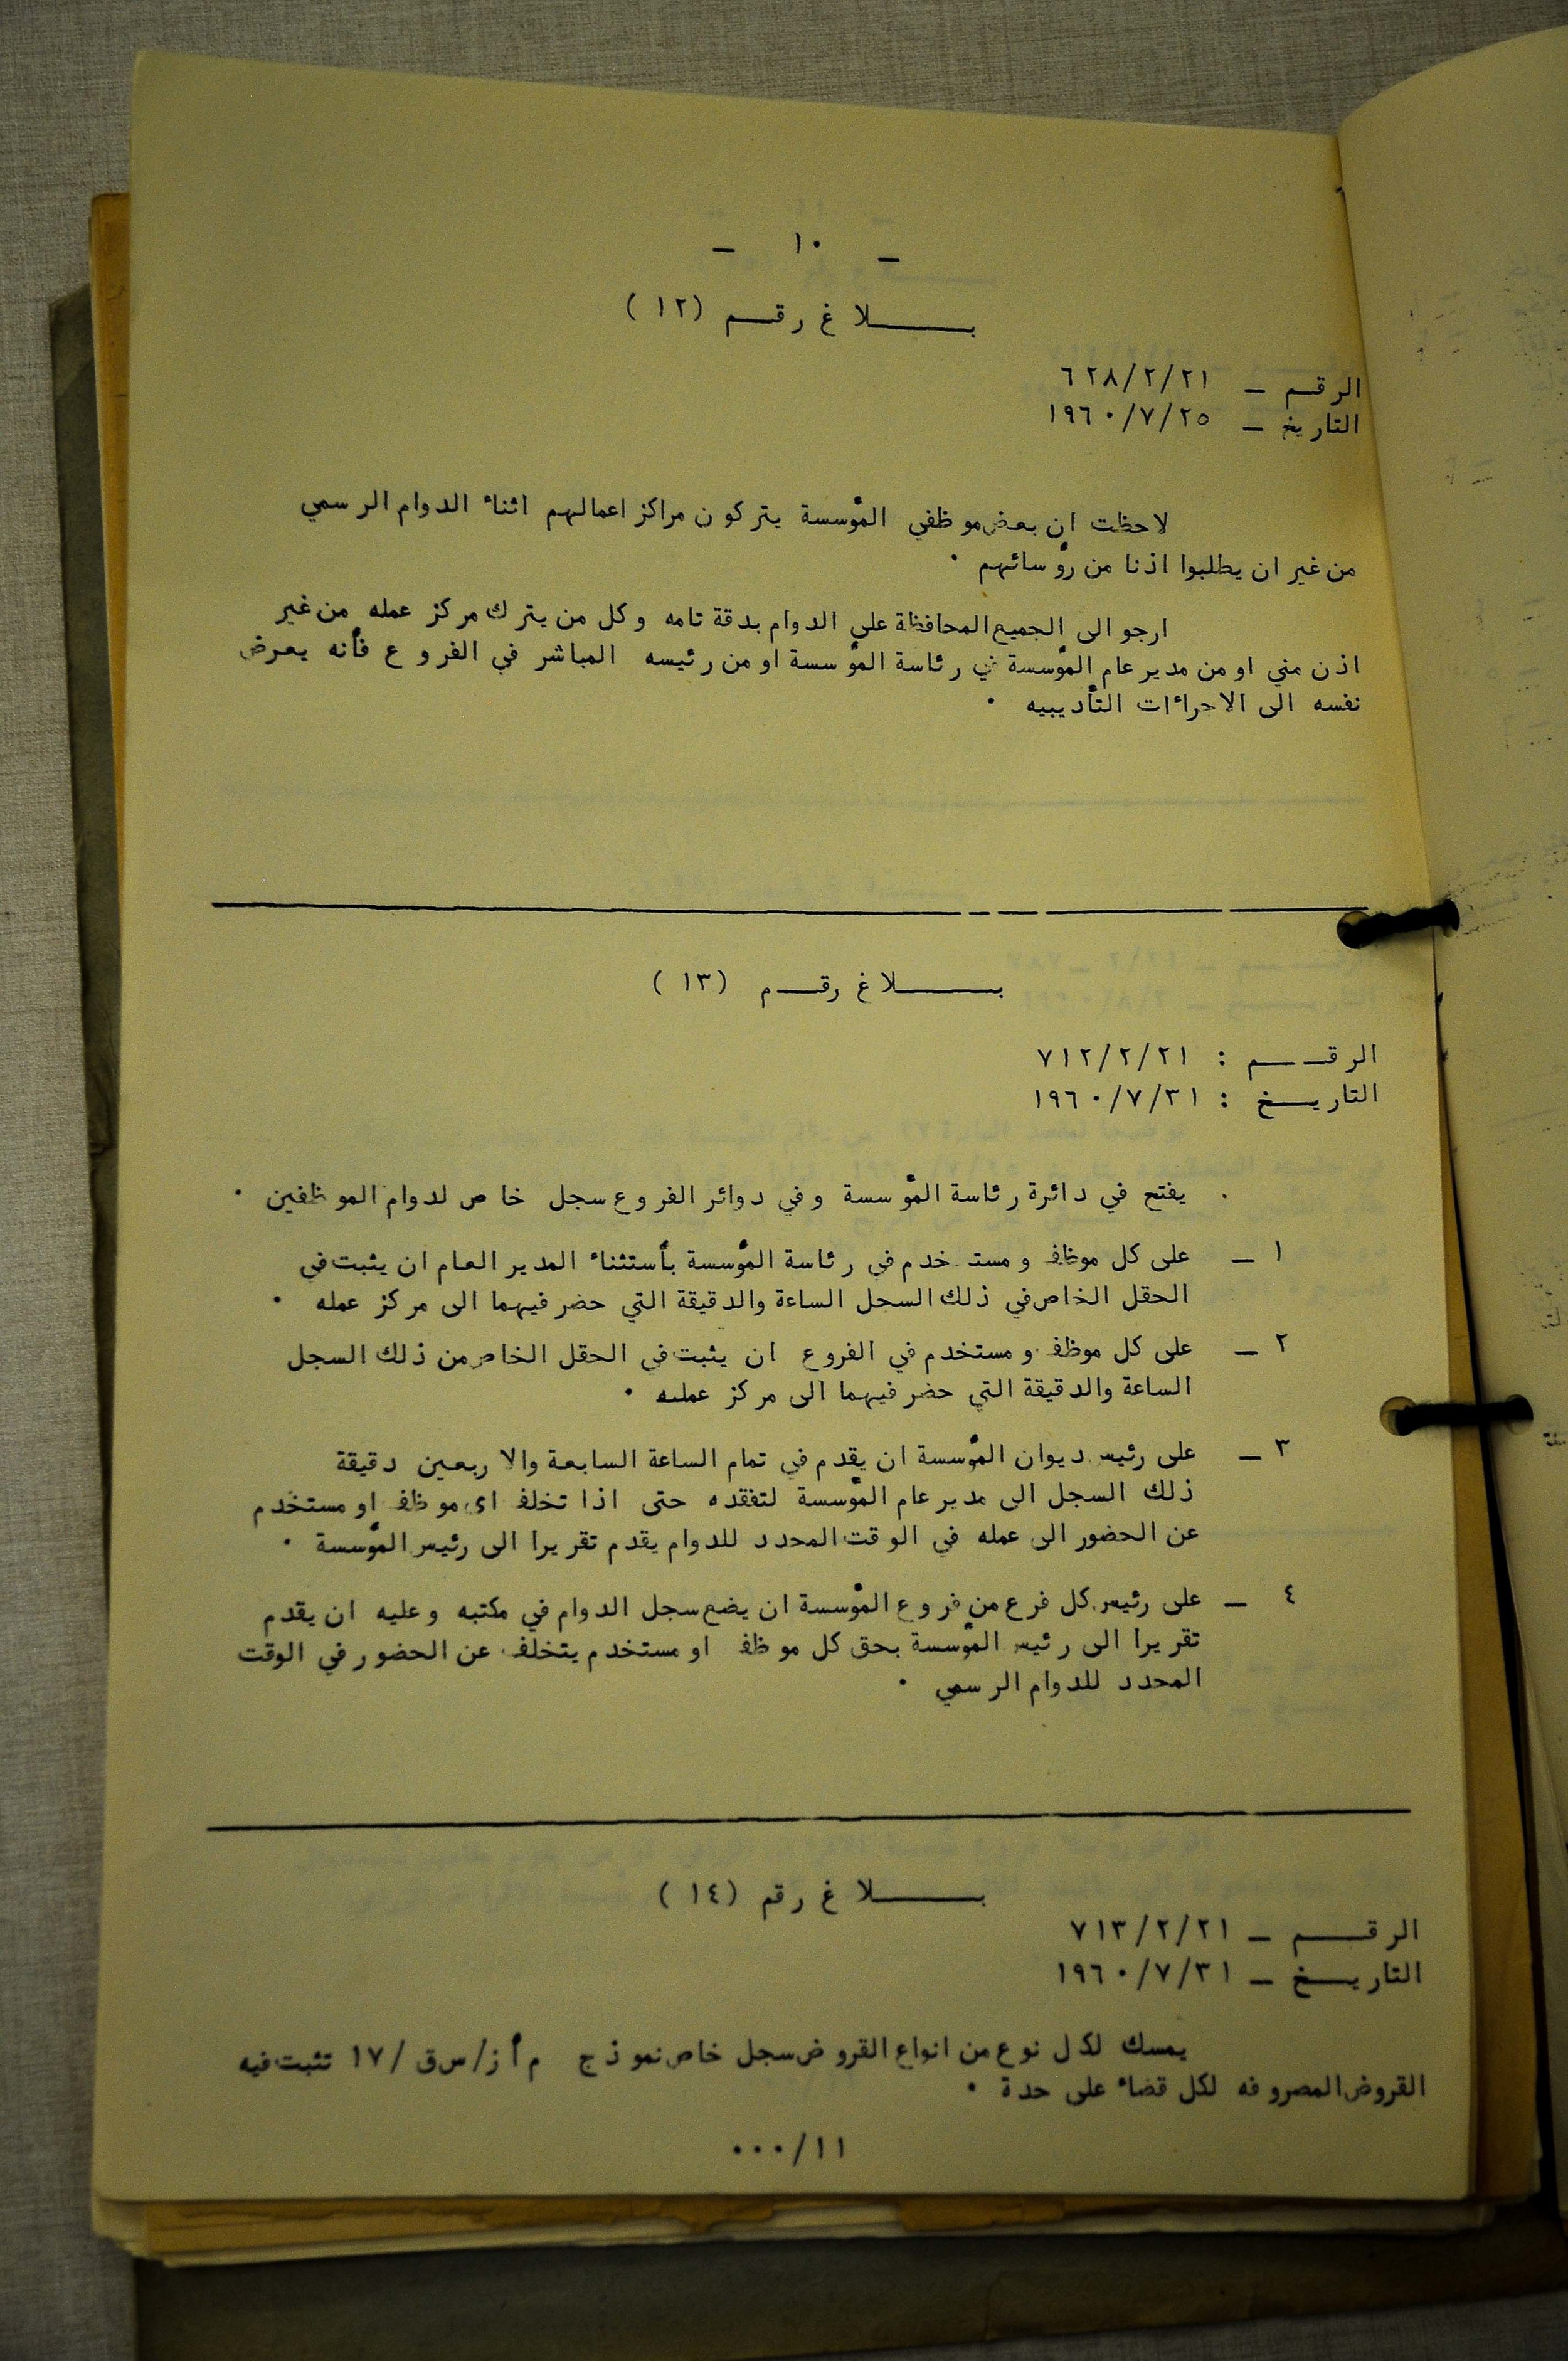 - ١٠ -
بـــــلاغ رقــم (١٢)
الرقــم ــ ٦٢٨/٢/٢١
التاريخ ــ ١٩٦٠/٧/٢٥
لاحظت ان بعض موظفي المؤسسة يتركون مراكز اعمالهم اثناء الدوام الرسمي
من غير ان يطلبوا اذنا من رؤسائهم .
ارجو الى الجميع المحافظة على الدوام بدقة تامه وكل من يترك مركز عمله من غير
اذن مني او من مدير عام المؤسسة في رئاسة المؤسسة او من رئيسه المباشر في الفروع فأنه يعرض
نفسه الى الاجراءات التأديبيه .
بـــــلاغ رقــم (١٣)
الرقـــم : ٧١٢/٢/٢١
التاريـخ : ١٩٦٠/٧/٣١
. يفتح في دائرة رئاسة المؤسسة وفي دوائر الفروع سجل خاص لدوام الموظفين .
١ ــ على كل موظف ومستخدم في رئاسة المؤسسة بأستثناء المدير العام ان يثبت في
الحقل الخاص في ذلك السجل الساعة والدقيقة التي حضر فيهما الى مركز عمله .
٢ ــ على كل موظف ومستخدم في الفروع ان يثبت في الحقل الخاص من ذلك السجل
الساعة والدقيقة التي حضر فيهما الى مركز عمله .
٣ ــ على رئيس ديوان المؤسسة ان يقدم في تمام الساعة السابعة والاربعين دقيقة
ذلك السجل الى مدير عام المؤسسة لتفقده حتى اذا تخلف اى موظف او مستخدم
عن الحضور الى عمله في الوقت المحدد للدوام يقدم تقريرا الى رئيس المؤسسة .
٤ ــ على رئيس كل فرع من فروع المؤسسة ان يضع سجل الدوام في مكتبه وعليه ان يقدم
تقريرا الى رئيس المؤسسة بحق كل موظف او مستخدم يتخلف عن الحضور في الوقت
المحدد للدوام الرسمي .
بـــــلاغ رقم (١٤)
الرقـــم ــ ٧١٣/٢/٢١
التاريـخ ــ ١٩٦٠/٧/٣١
يمسك لكل نوع من انواع القروض سجل خاص نموذج م أ ز/س ق /١٧ تثبت فيه
القروض المصروفه لكل قضاء على حدة .
٠٠٠/١١